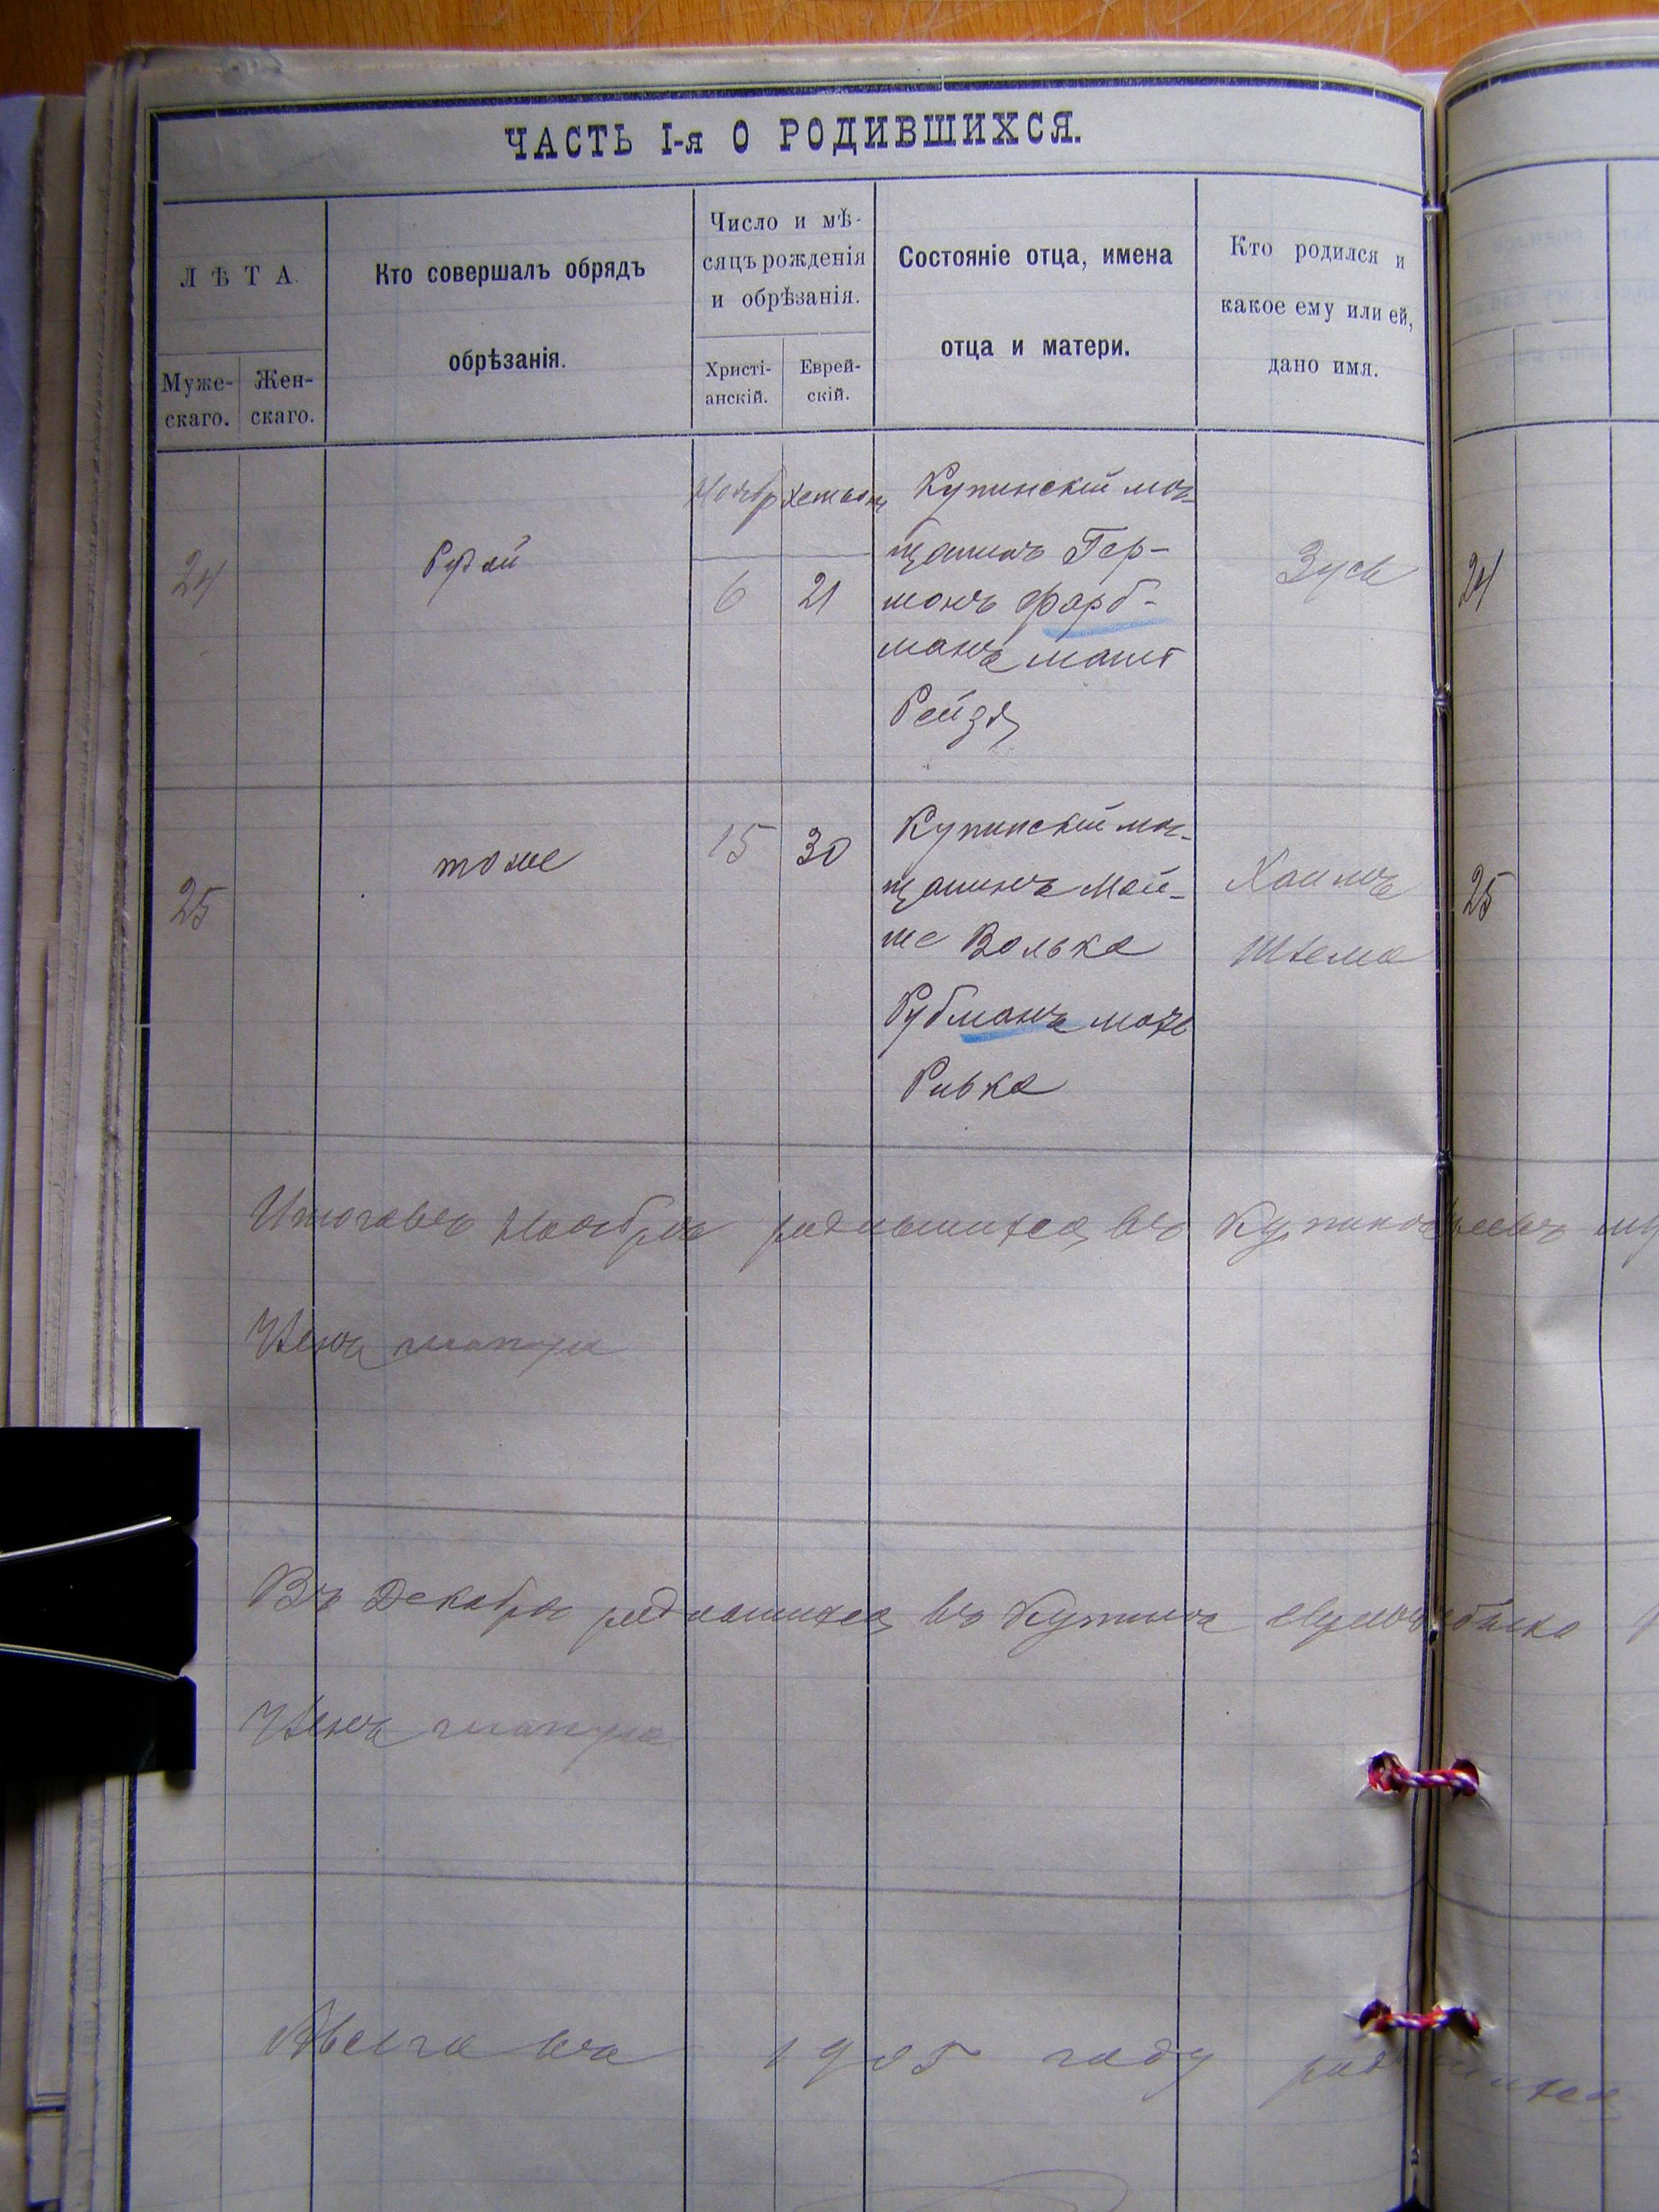 ЧАСТЬ I-я О РОДИВШИХСЯ.
ЛѢТА.
Муже-
скаго.
Жен-
скаго.
Кто совершалъ обрядъ
обрѣзанія.
Число и мѣ-
сяцъ рожденія
и обрѣзанія.
Христі-
анскій.
Еврей-
скій.
Состояніе отца, имена
отца и матери.
Кто родился и
какое ему или ей,
дано имя.
24
Ноябр
6
21
Купинскій мѣ-
щанинъ Гер-
шонъ Фарб-
манъ мать
Рейзя
Зусь
24
25
тоже
15
30
Купинскій мѣ-
щанинъ Мой-
ше Волько
Рубманъ мать
Ривка
Хаимъ
25
Итого въ Ноябрѣ родившихся въ
Въ Декабрѣ родившихся въ Купинѣ
А всего въ 1905 году родившихся